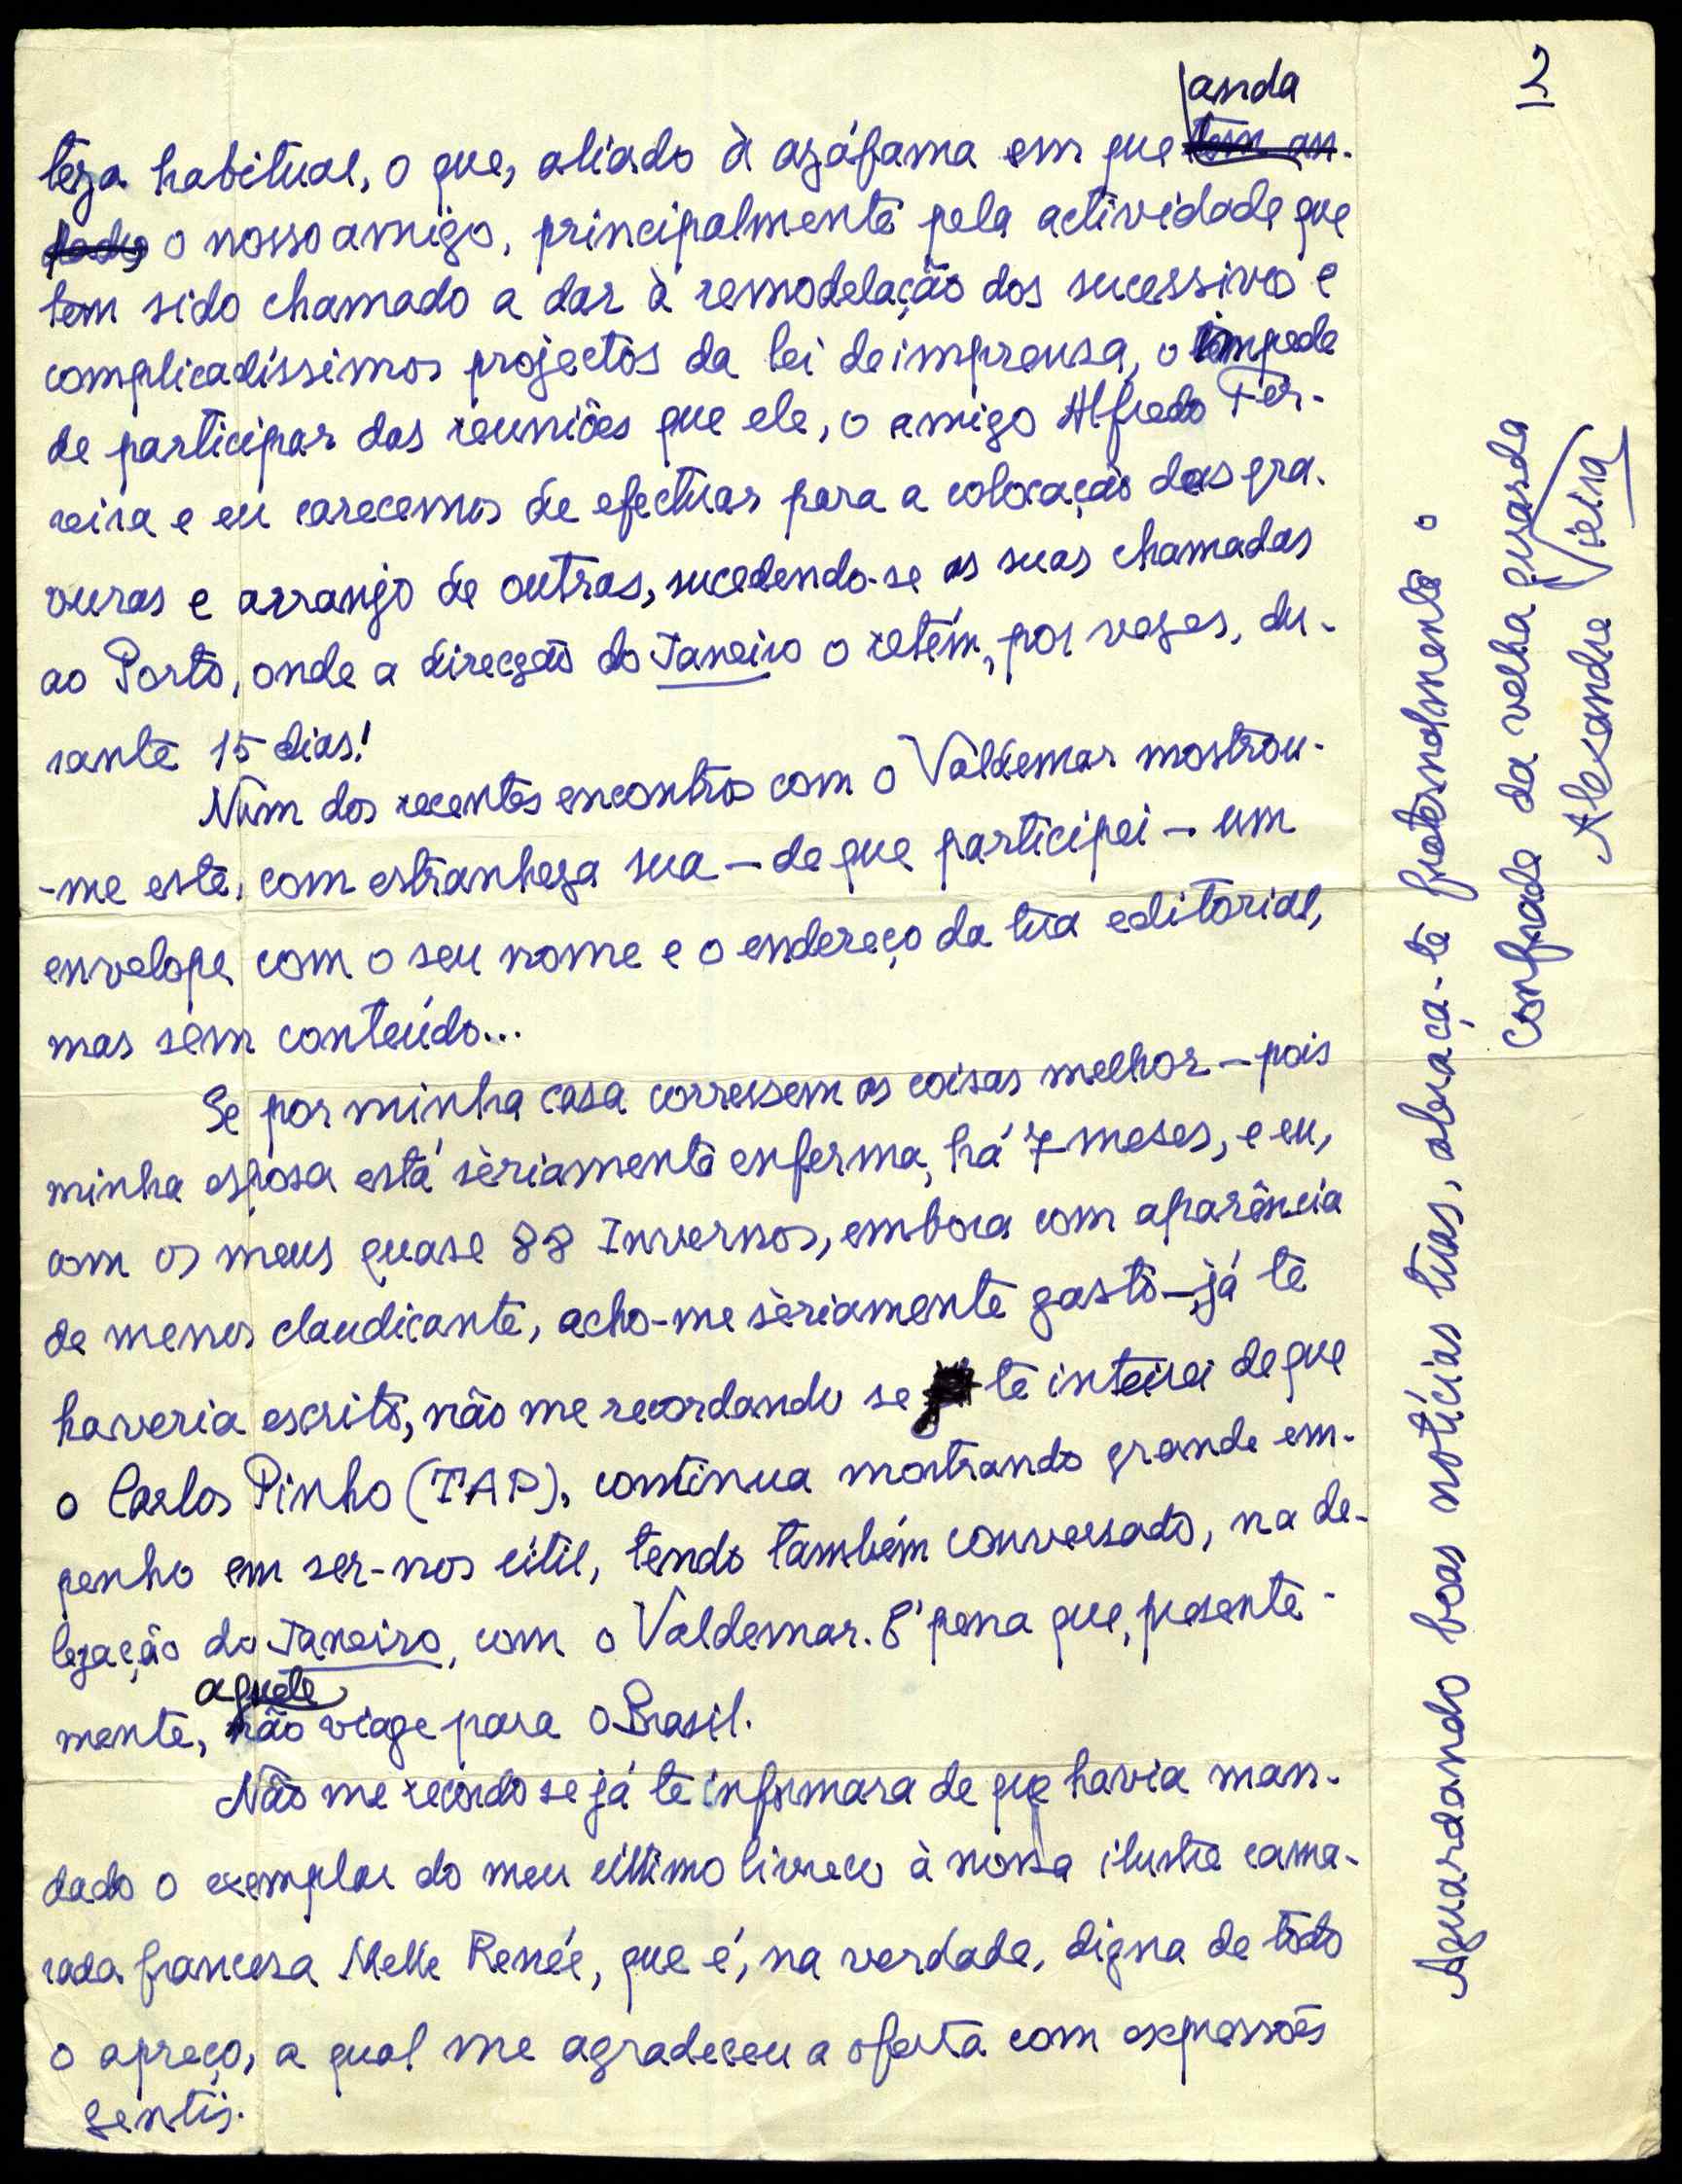 2
anda
teza habitual, o que, aliado à azáfama em que tem an-
dado o nosso amigo, principalmente pela actividade que
tem sido chamado a dar à remodelação dos sucessivos e
complicadíssimos projectos da lei de imprensa, o impede
de participar das reuniões que ele, o amigo Alfredo Fer-
reira e eu carecemos de efectuar para a colocação das gra-
vuras e arranjo de outras, sucedendo-se as suas chamadas
ao Porto, onde a direcção do Janeiro o retém, por vezes, du-
rante 15 dias!
Num dos recentes encontros com o Valdemar mostrou-
-me este, com estranheza sua — de que participei — um
envelope com o seu nome e o endereço da tua editorial,
mas sem conteúdo...
Se por minha casa corressem as coisas melhor — pois
minha esposa está sèriamente enferma, há 7 meses, e eu,
com os meus quase 88 Invernos, embora com aparência
de menos claudicante, acho-me sèriamente gasto — já te
haveria escrito, não me recordando se te inteirei de que
o Carlos Pinho (TAP), continua mostrando grande em-
penho em ser-nos útil, tendo também conversado, na de-
legação do Janeiro, com o Valdemar. É pena que, presente-
aquele
mente, não viage para o Brasil.
Não me recordo se já te informara de que havia man-
dado o exemplar do meu último livreco à nossa ilustre cama-
rada francesa Melle Renée, que é, na verdade, digna de todo
o apreço, a qual me agradeceu a oferta com expressões
gentis.
Aguardando boas notícias tuas, abraça-te fraternalmente o
confrade da velha guarda
Alexandre Vieira